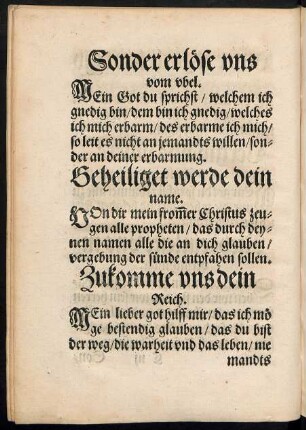 Sonder erlöse vns
vom vbel.
MEin Got du sprichst / welchem ich
gnedig bin / dem bin ich gnedig / welches
ich mich erbarm / des erbarme ich mich /
so leit es nicht an jemandts willen / son-
der an deiner erbarmung.
Geheiliget werde dein
name.
VOn dir mein from̃er Christus zeu-
gen alle propheten / das durch dey-
nen namen alle die an dich glauben /
vergebung der sünde entpfahen sollen.
Zukomme vns dein
Reich.
MEin lieber got hilff mir / das ich mö
ge bestendig glauben / das du bist
der weg / die warheit vnd das leben / nie
mandts